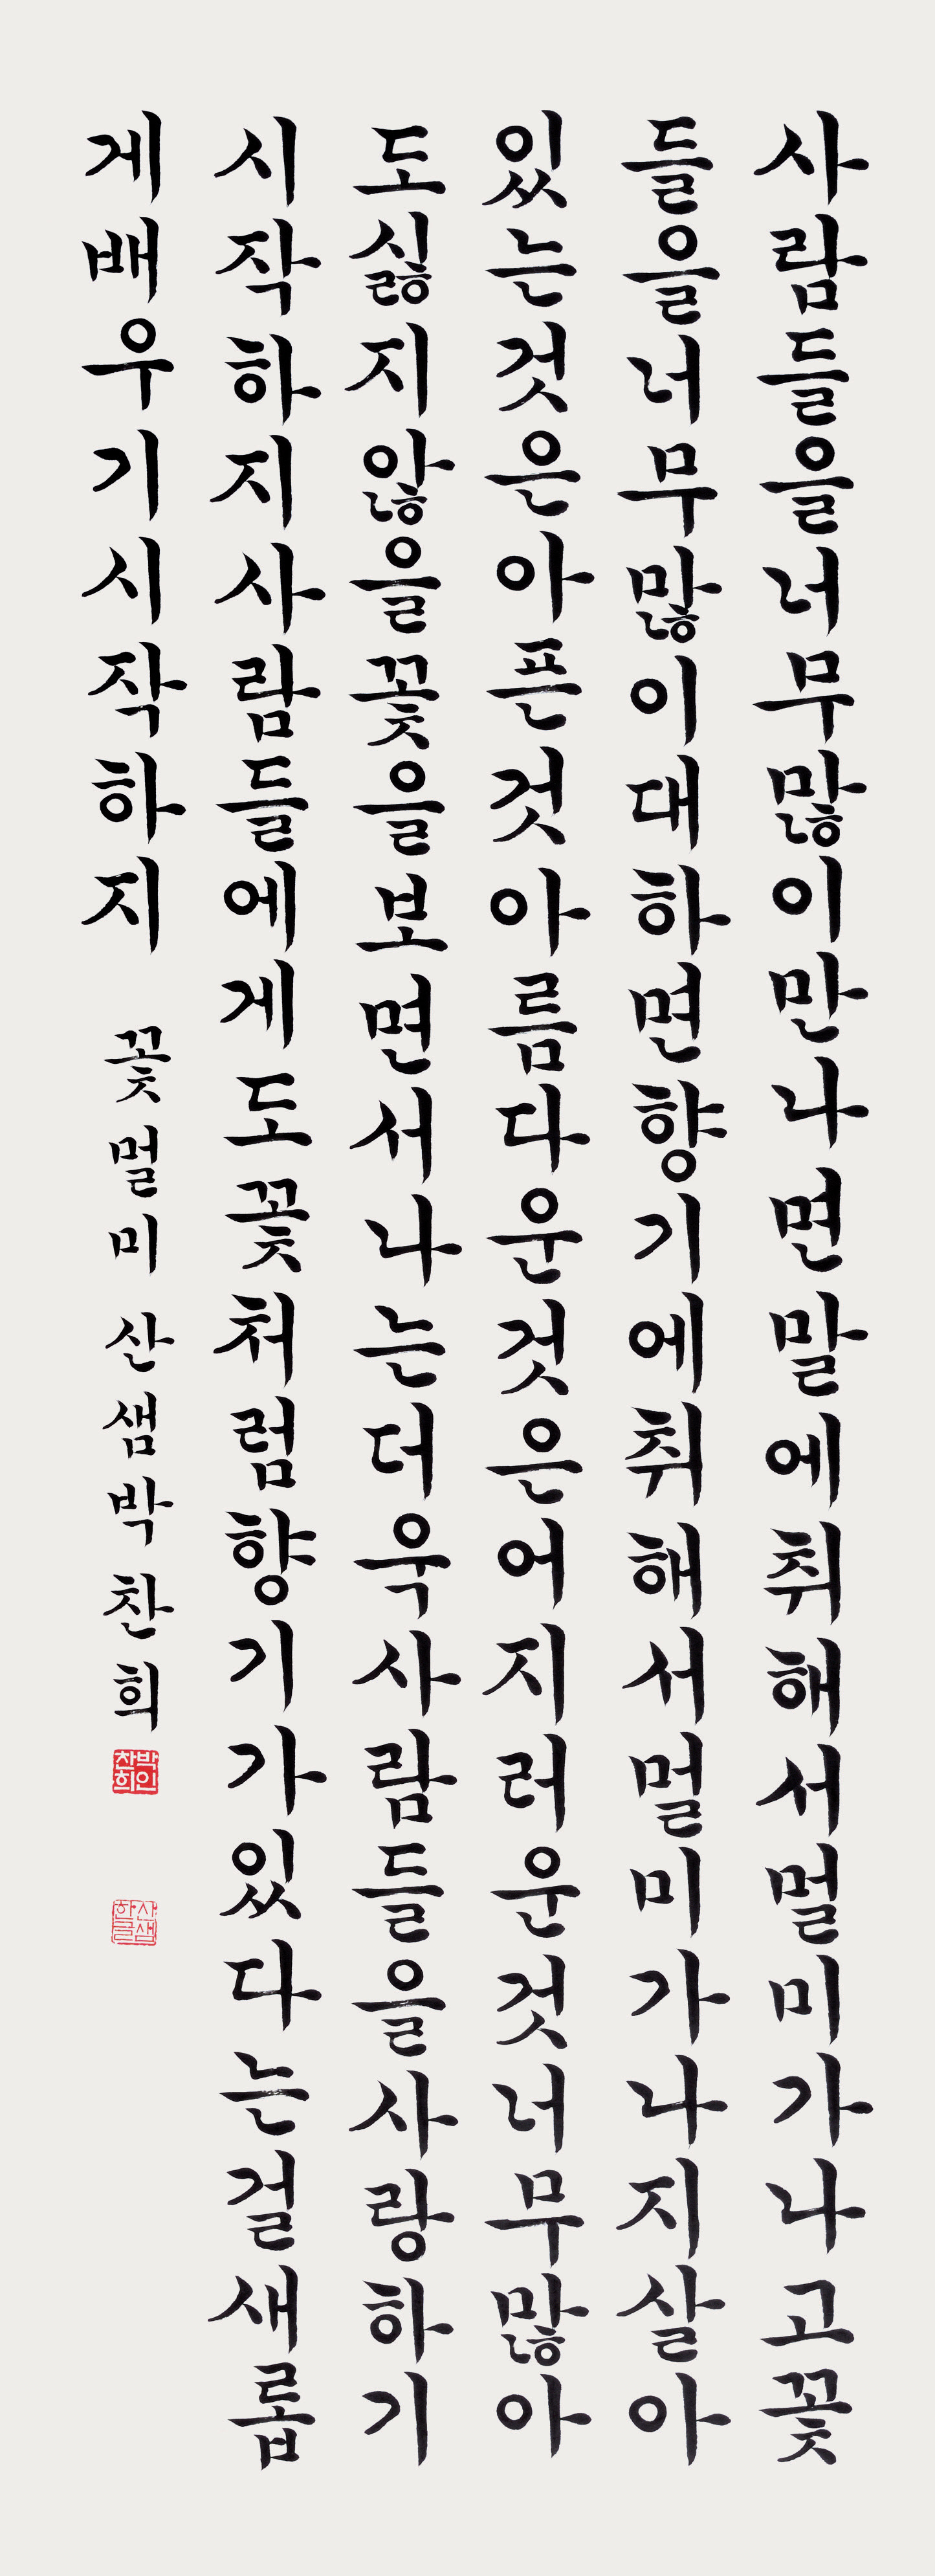 사람들을너무많이만나면말에취해서멀미가나고꽃
들을너무많이대하면향기에취해서멀미가나지살아
있는것은아픈것아름다운것은어지러운것너무많아
도싫지않을꽃을보면서나는더욱사람들을사랑하기
시작하지사람들에게도꽃처럼향기가있다는걸새롭
게배우기시작하지 꽃멀미 산샘박찬희
박인찬희
산샘한글